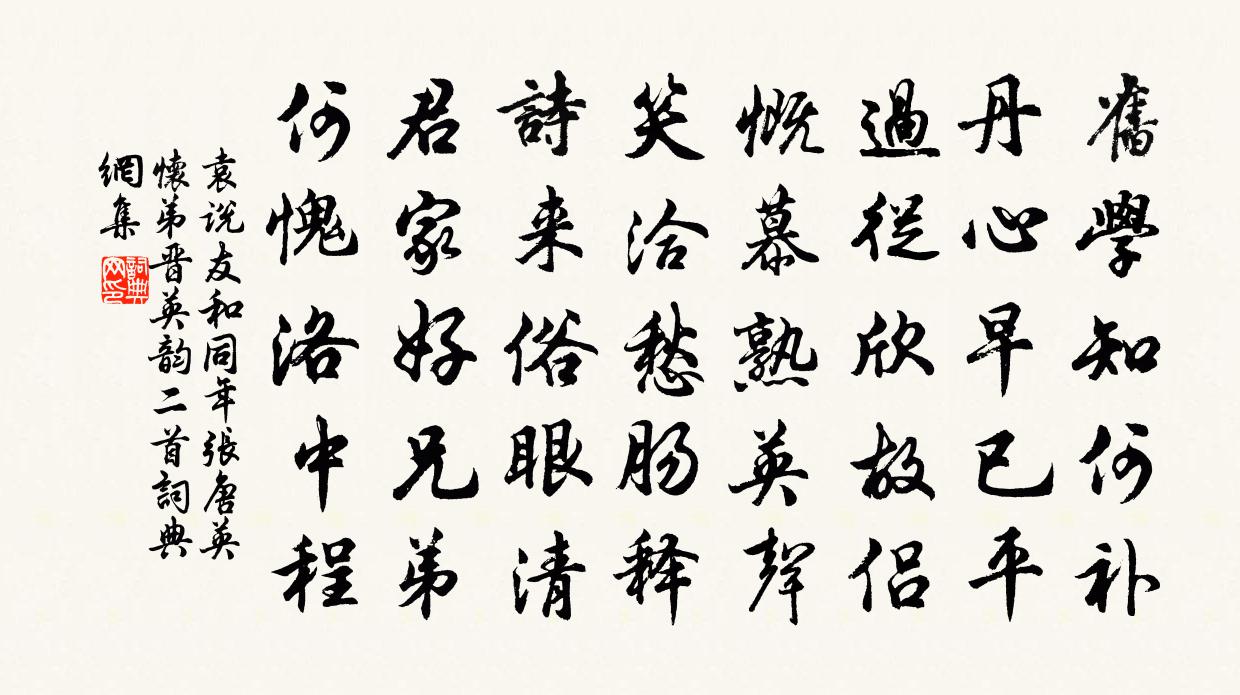 舊學知何补
丹心早已平
過從欣故侣
慨慕熟英聲
笑洽愁肠释
詩来俗眼清
君家好兄弟
何愧洛中程
袁说友和同年張唐英
懷弟晋英韵二首詞典
網集
詞典网印